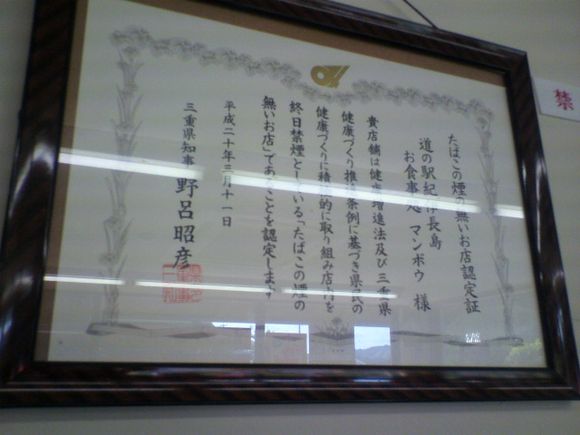 たばこの煙の無いお店認定証
道の駅紀伊長島
お食事処 マンボウ 様
貴店舗は健康増進法及び三重県
健康づくり推進条例に基づき県民の
健康づくりに積極的に取り組み店内を
終日禁煙としている「たばこの煙の
無いお店」であることを認定します
平成二十年三月十一日
三重県知事 野呂昭彦
禁